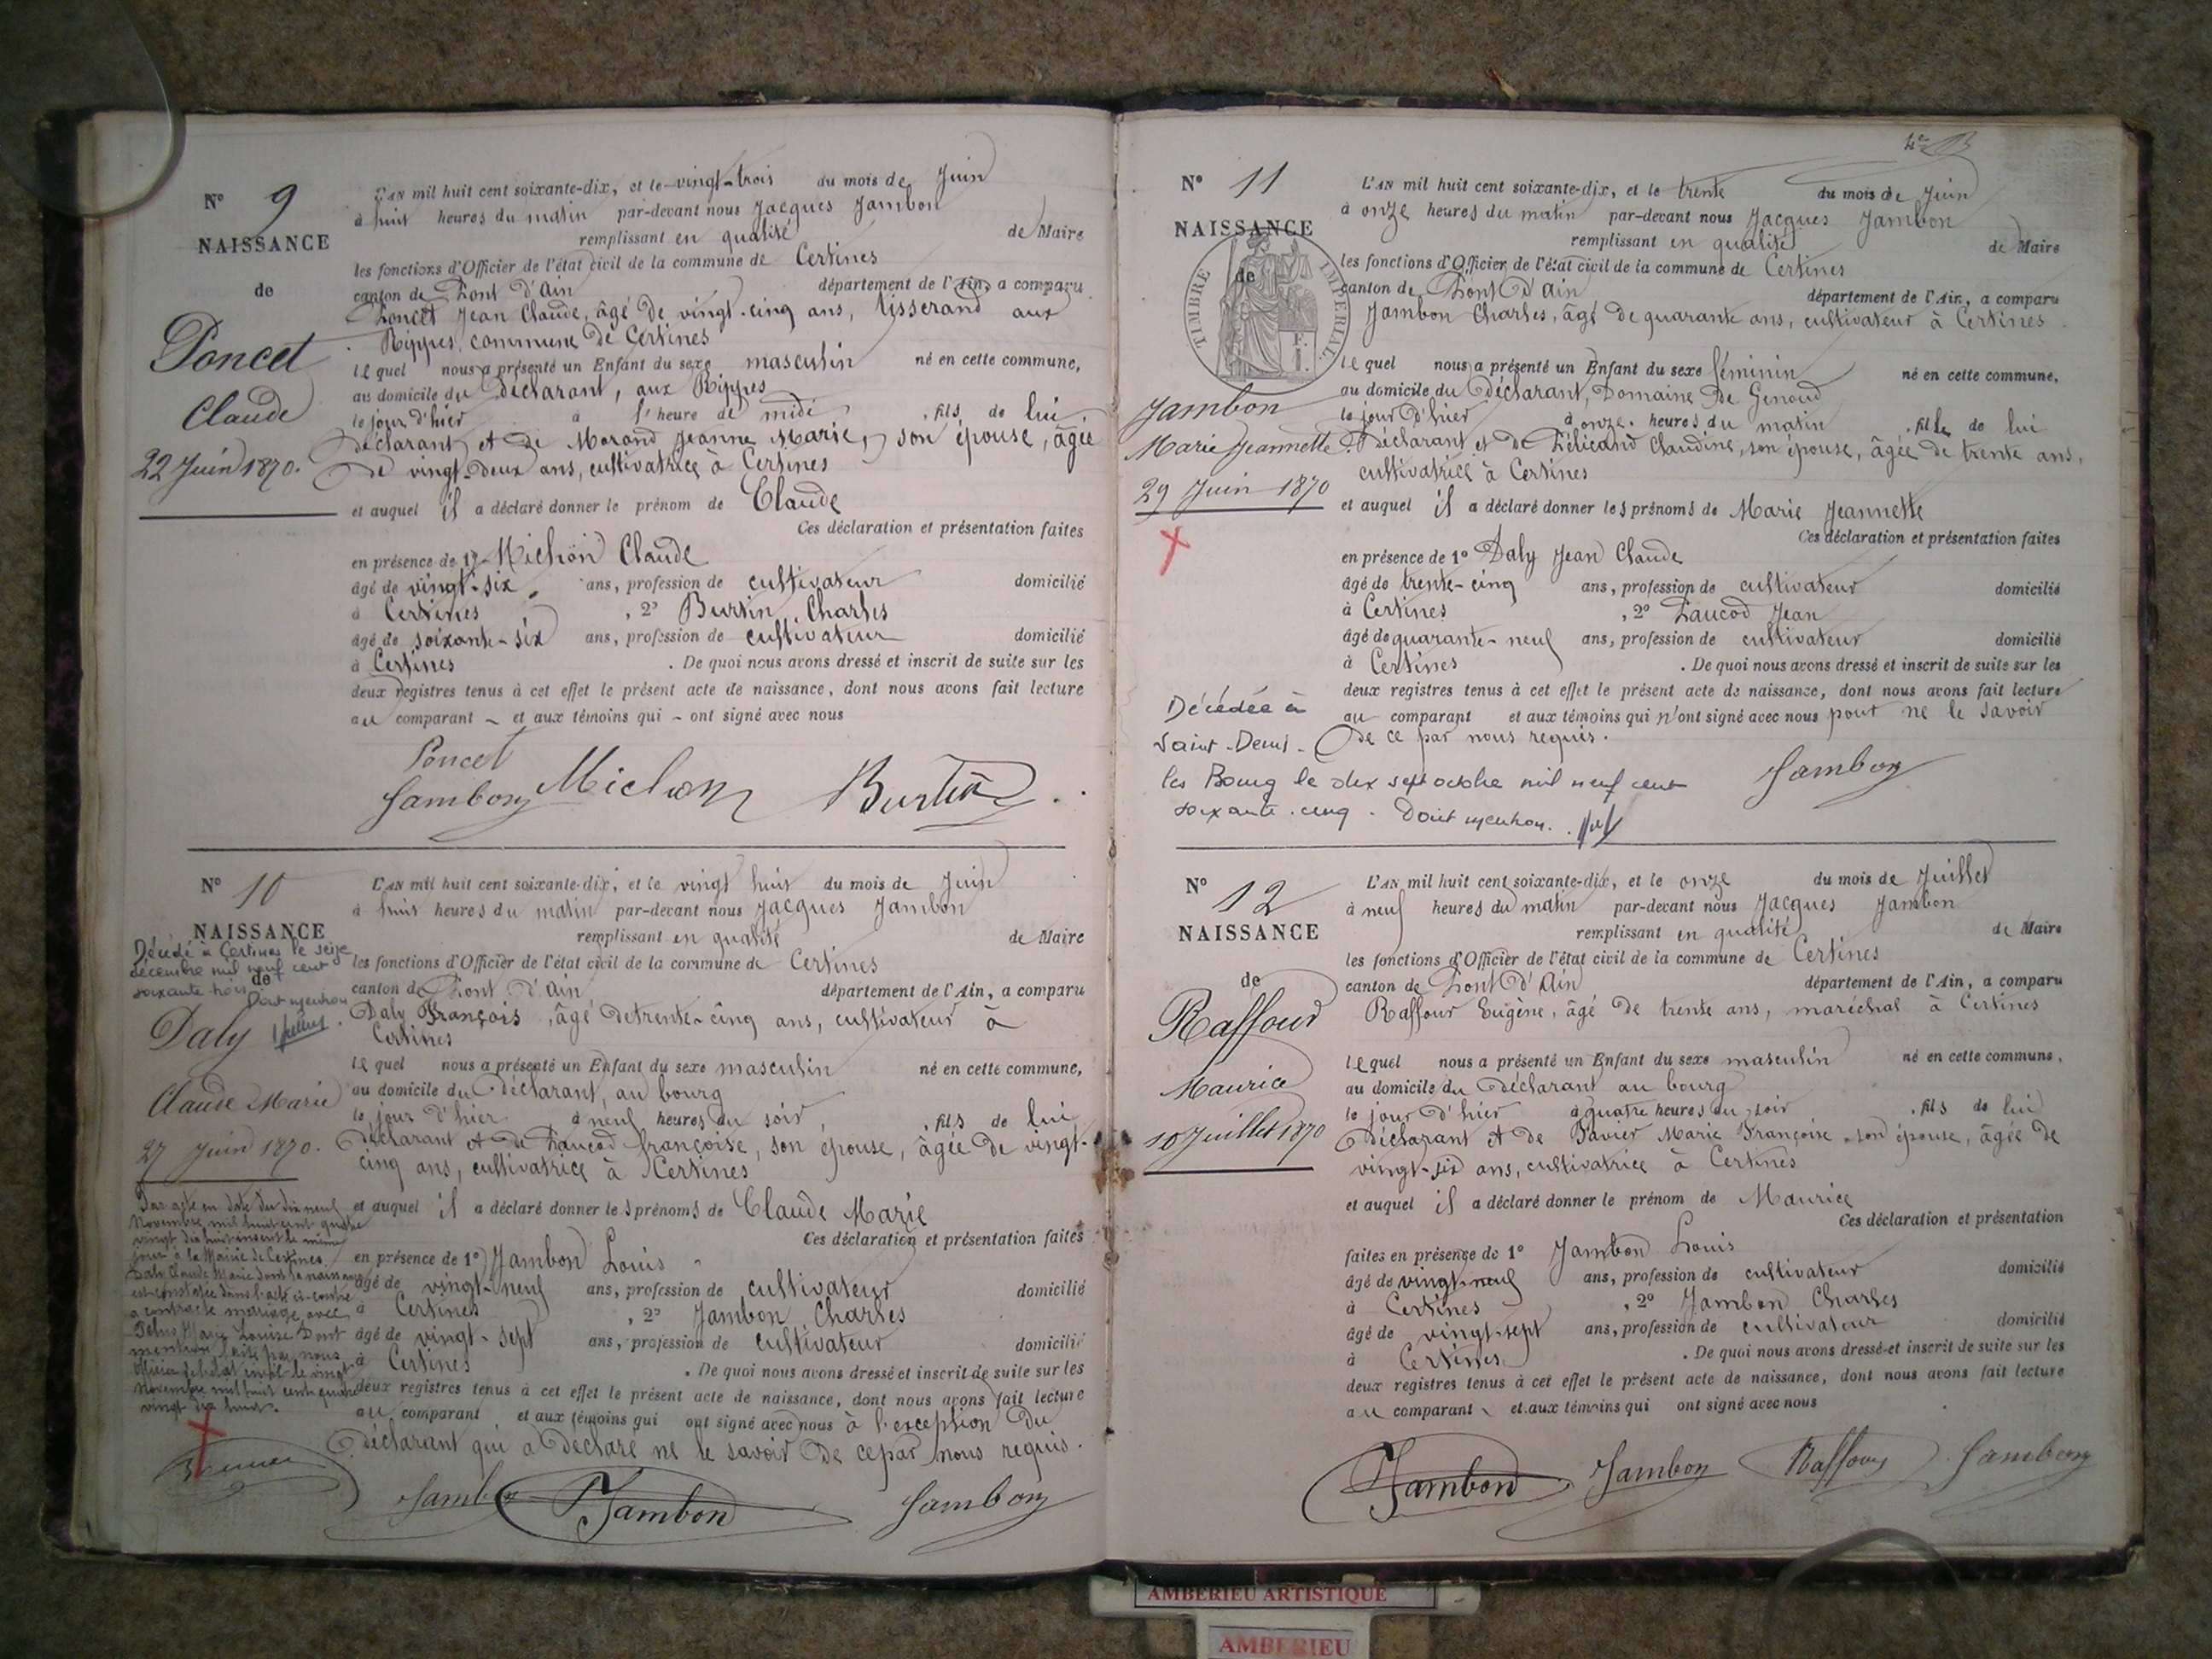 N° 9
NAISSANCE
de
Poncet
Claude
22 Juin 1870.
L'AN mil huit cent soixante-dix, et le vingt-trois du mois de Juin
à huit heures du matin par-devant nous Jacques Jambon
remplissant en qualité de Maire
les fonctions d'Officier de l'état civil de la commune de Certines
canton de Pont d'Ain département de l'Ain, a comparu
Poncet Jean Claude, âgé de vingt-cinq ans, tisserand aux
Rippes commune de Certines
lequel nous a présenté un Enfant du sexe masculin né en cette commune,
au domicile du déclarant, aux Rippes
le jour d'hier à l'heure de midi, fils de lui
déclarant et de Morand Jeanne Marie, son épouse, âgée
de vingt-deux ans, cultivatrice à Certines
et auquel il a déclaré donner le prénom de Claude
Ces déclaration et présentation faites
en présence de 1° Michon Claude
âgé de vingt-six ans, profession de cultivateur domicilié
à Certines, 2° Burtin Charles
âgé de soixante-six ans, profession de cultivateur domicilié
à Certines. De quoi nous avons dressé et inscrit de suite sur les
deux registres tenus à cet effet le présent acte de naissance, dont nous avons fait lecture
au comparant et aux témoins qui ont signé avec nous
Poncet
Jambon Michon Burtin
N° 10
NAISSANCE
de
Décédé à Certines le seize
décembre mil neuf cent
soixante trois.
Dont mention
Daly
Claude Marie
27 Juin 1870.
L'AN mil huit cent soixante-dix, et le vingt huit du mois de Juin
à huit heures du matin par-devant nous Jacques Jambon
remplissant en qualité de Maire
les fonctions d'Officier de l'état civil de la commune de Certines
canton de Pont d'Ain département de l'Ain, a comparu
Daly François, âgé de trente-cinq ans, cultivateur à
Certines
lequel nous a présenté un Enfant du sexe masculin né en cette commune,
au domicile du déclarant, au bourg
le jour d'hier à neuf heures du soir, fils de lui
déclarant et de Paucod françoise, son épouse, âgée de vingt-
cinq ans, cultivatrice à Certines
et auquel il a déclaré donner les prénoms de Claude Marie
Ces déclaration et présentation faites
en présence de 1° Jambon Louis
âgé de vingt-neuf ans, profession de cultivateur domicilié
à Certines, 2° Jambon Charles
âgé de vingt-sept ans, profession de cultivateur domicilié
à Certines. De quoi nous avons dressé et inscrit de suite sur les
deux registres tenus à cet effet le présent acte de naissance, dont nous avons fait lecture
au comparant et aux témoins qui ont signé avec nous à l'exception du
déclarant qui a déclaré ne le savoir de ce par nous requis.
Par acte en date du dix neuf
Novembre mil huit cent quatre
vingt dix huit inscrit le même
jour à la Mairie de Certines
Daly Claude Marie dont la naissance
est constatée dans l'acte ci-contre
a contracté mariage avec
Marie Louise Dont
mention faite par nous
officier de l'état civil le vingt
Novembre mil huit cent quatre
vingt dix huit.
Jambon Jambon Jambon
N° 11
NAISSANCE
de
TIMBRE IMPERIAL
Jambon
Marie Jeannette
29 Juin 1870
L'AN mil huit cent soixante-dix, et le trente du mois de Juin
à onze heures du matin par-devant nous Jacques Jambon
remplissant en qualité de Maire
les fonctions d'Officier de l'état civil de la commune de Certines
canton de Pont d'ain département de l'Ain, a comparu
Jambon Charles, âgé de quarante ans, cultivateur à Certines
lequel nous a présenté un Enfant du sexe féminin né en cette commune,
au domicile du déclarant, Domaine de Genoud
le jour d'hier à onze heures du matin, fille de lui
déclarant et de Claudine, son épouse, âgée de trente ans,
cultivatrice à Certines
et auquel il a déclaré donner les prénoms de Marie Jeannette
Ces déclaration et présentation faites
en présence de 1° Daly Jean Claude
âgé de trente-cinq ans, profession de cultivateur domicilié
à Certines, 2° Paucod Jean
âgé de quarante-neuf ans, profession de cultivateur domicilié
à Certines. De quoi nous avons dressé et inscrit de suite sur les
deux registres tenus à cet effet le présent acte de naissance, dont nous avons fait lecture
au comparant et aux témoins qui n'ont signé avec nous pour ne le savoir
de ce par nous requis.
Jambon
Décédée à
Saint-Denis-
les Bourg le dix sept octobre mil neuf cent
soixante-cinq. Dont mention.
N° 12
NAISSANCE
de
Raffour
Maurice
10 Juillet 1870
L'AN mil huit cent soixante-dix, et le onze du mois de Juillet
à neuf heures du matin par-devant nous Jacques Jambon
remplissant en qualité de Maire
les fonctions d'Officier de l'état civil de la commune de Certines
canton de Pont d'Ain département de l'Ain, a comparu
Raffour Eugène, âgé de trente ans, maréchal à Certines
lequel nous a présenté un Enfant du sexe masculin né en cette commune,
au domicile du déclarant au bourg
le jour d'hier à quatre heures du soir, fils de lui
déclarant et de Pavier Marie Françoise son épouse, âgée de
vingt-six ans, cultivatrice à Certines
et auquel il a déclaré donner le prénom de Maurice
Ces déclaration et présentation
faites en présence de 1° Jambon Louis
âgé de vingt-neuf ans, profession de cultivateur domicilié
à Certines, 2° Jambon Charles
âgé de vingt-sept ans, profession de cultivateur domicilié
à Certines. De quoi nous avons dressé et inscrit de suite sur les
deux registres tenus à cet effet le présent acte de naissance, dont nous avons fait lecture
au comparant et aux témoins qui ont signé avec nous
Jambon Jambon Raffour Jambon
AMBERIEU ARTISTIQUE
AMBERIEU